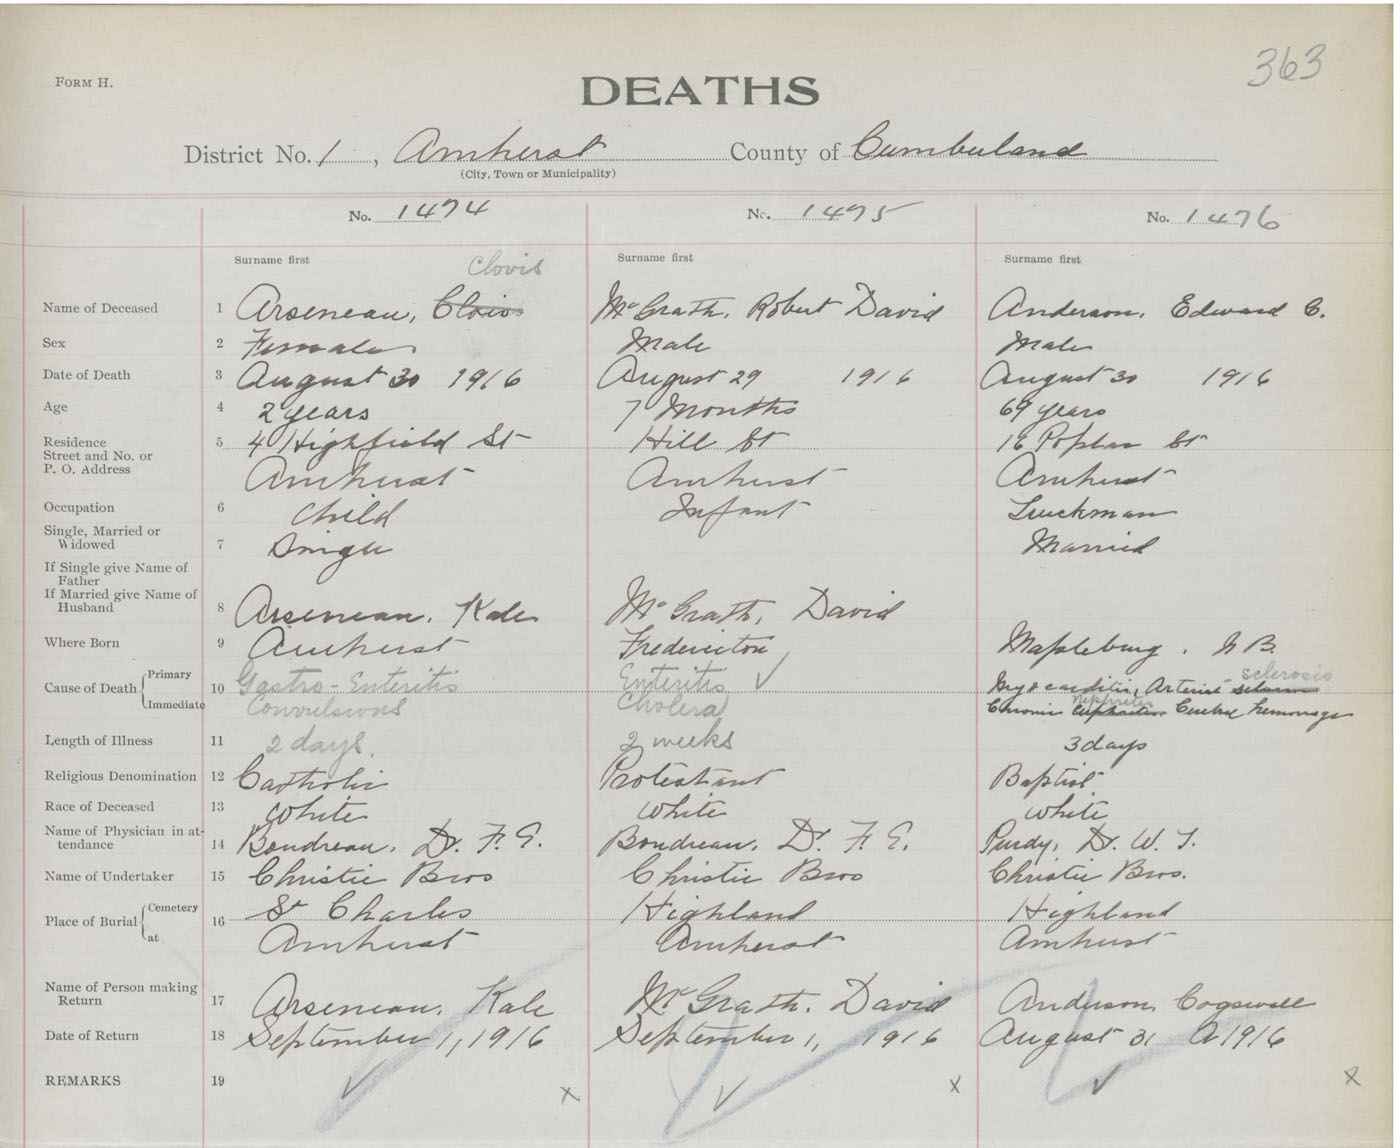 363
FORM H.
DEATHS
District No. 1, Amherst County of Cumberland
(City, Town or Municipality)
No. 1474 No. 1475 No. 1476
Surname first Surname first Surname first
Clovis
Name of Deceased 1 Arseneau, Clois McGrath, Robert David Anderson, Edward C.
Sex 2 Female Male Male
Date of Death 3 August 30 1916 August 29 1916 August 30 1916
Age 4 2 years 7 Months 69 years
Residence 5 4 Highfield St Hill St 16 Poplar St
Street and No. or
P. O. Address Amherst Amherst Amherst
Occupation 6 Child Infant Truckman
Single, Married or
Widowed 7 Single Married
If Single give Name of
Father
If Married give Name of
Husband 8 Arseneau, Kale McGrath, David
Where Born 9 Amherst Fredericton Mapleburg, N B.
Cause of Death Primary 10 Gastro-Enteritis Enteritis Myocarditis, Arterial - sclerosis
Immediate Convulsions Cholera Chronic Nephrites Cerebral hemorrage
Length of Illness 11 2 days. 2 weeks 3 days
Religious Denomination 12 Catholic Protestant Baptist
Race of Deceased 13 White White White
Name of Physician in at-
tendance 14 Boudreau, Dr. F. E. Boudreau, Dr. F. E. Purdy, Dr. W. T.
Name of Undertaker 15 Christie Bros Christie Bros Christie Bros.
Place of Burial Cemetery 16 St Charles Highland Highland
at Amherst Amherst Amherst
Name of Person making
Return 17 Arseneau, Kale McGrath, David Anderson, Cogswell
Date of Return 18 September 1, 1916 September 1, 1916 August 31 A 1916
REMARKS 19 x x x